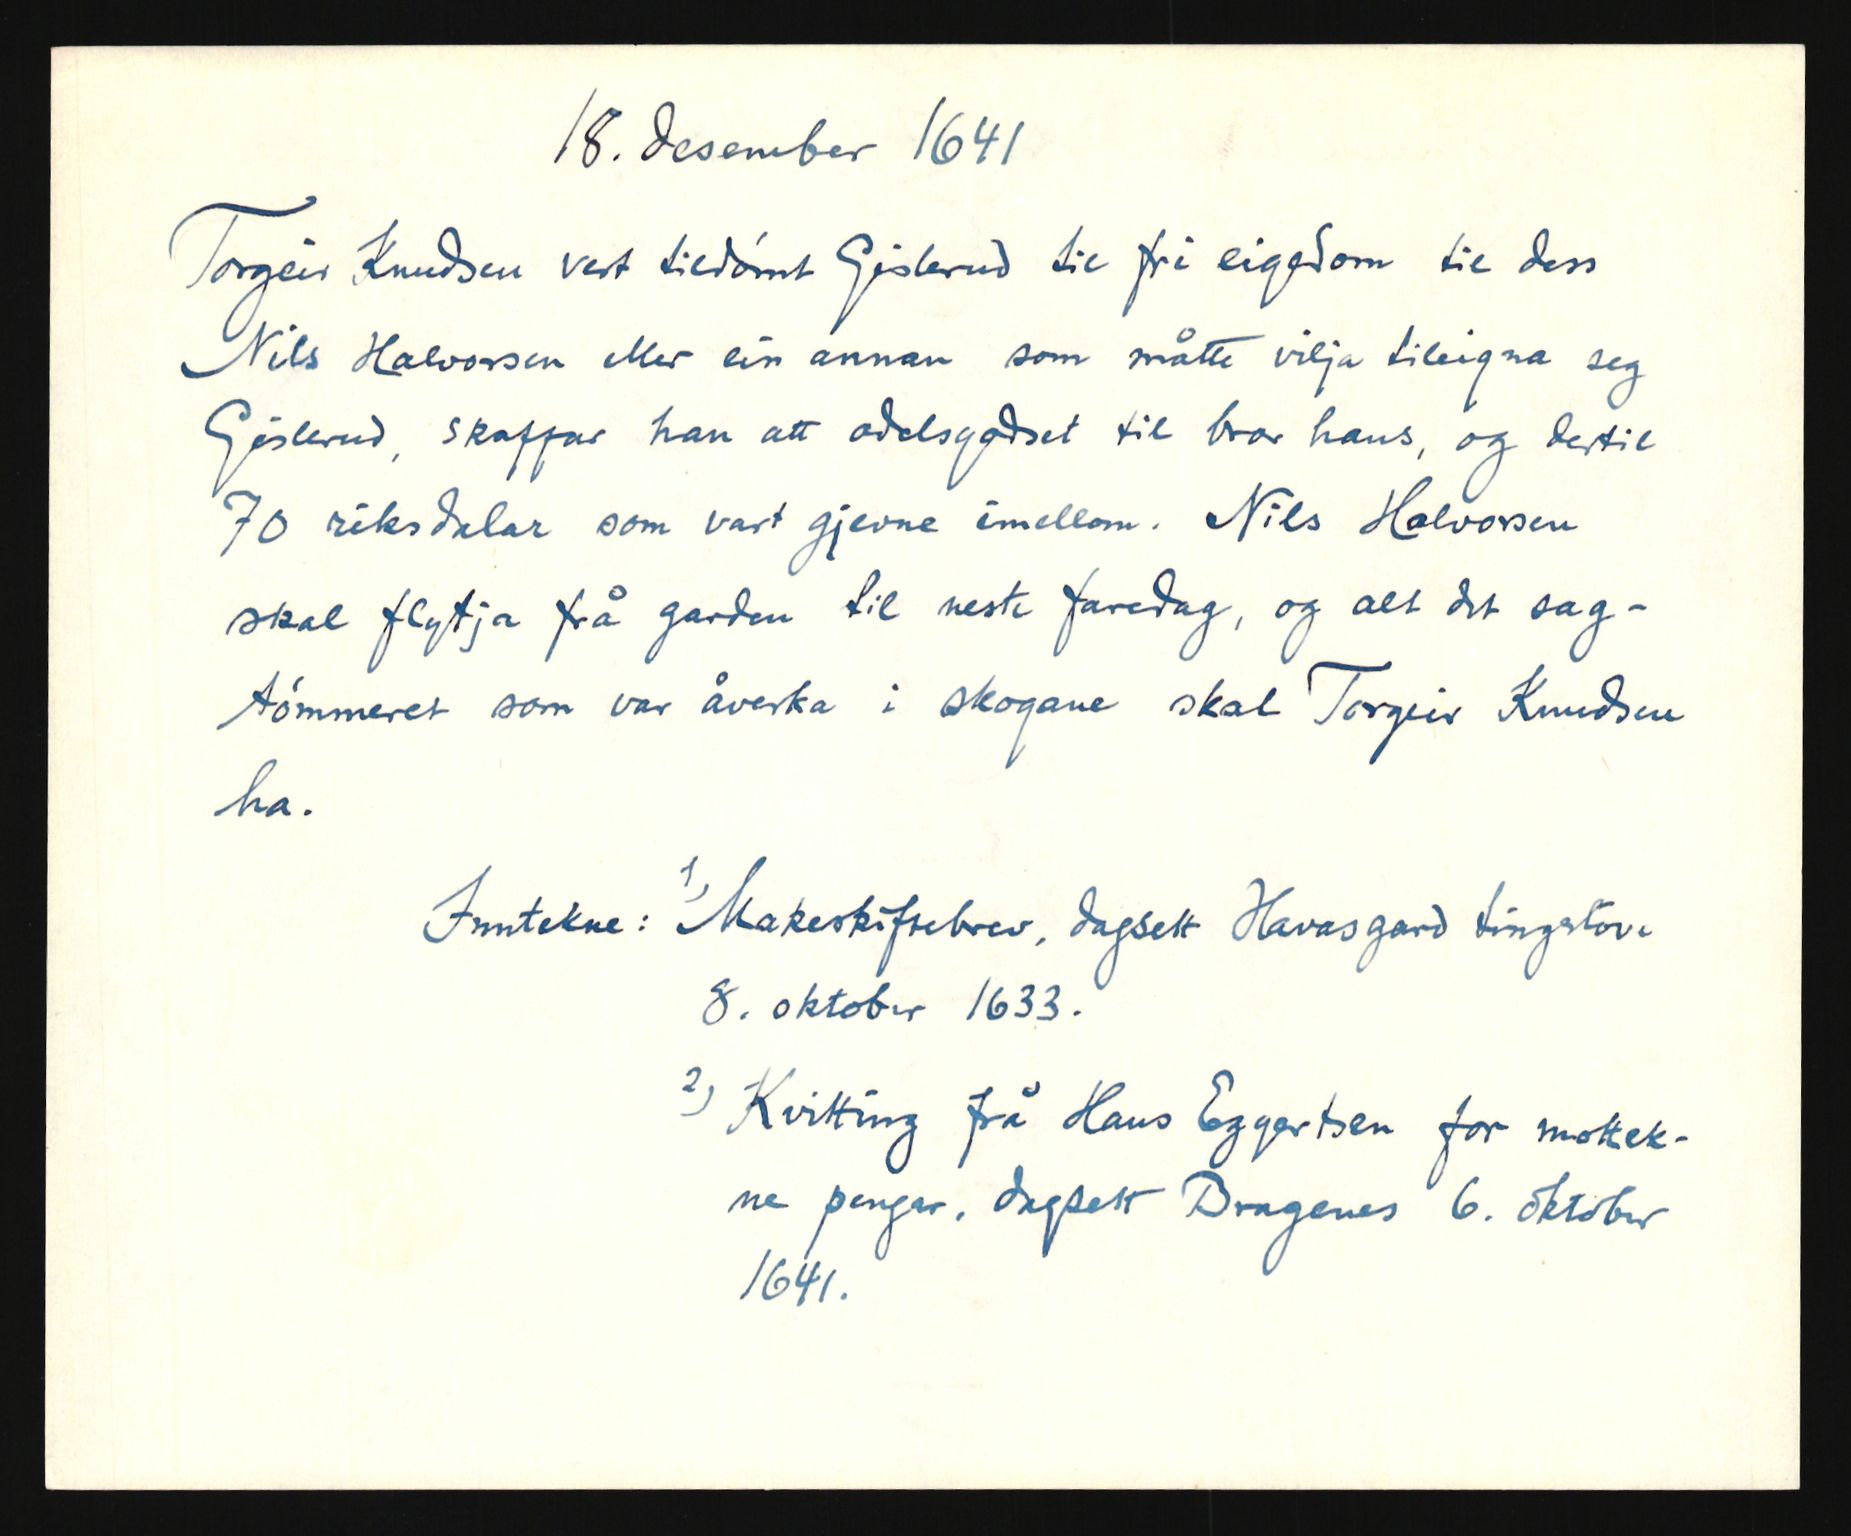 18. desember 1641
Torgeir Knudsen vert tildómt Gislerud til fri eigedom til dess
Nils Halvorsen eller ein annan som måtte vilja tileigna seg
Gislerud, skaffar han att odelsgodset til bror hans, og dertil
70 riksdalar som vart gjevne imellom. Nils Halvorsen
skal flytja frå garden til neste faredag, og alt det sag-
tómmeret som var åverka i skogane skal Torgeir Knudsen
ha.
Inntekne: 1) Makeskiftebrev, dagsett Havasgard tingstove
8. oktober 1633.
2) Kvitting frå Hans Eggertsen for mottek-
ne pengar, dagsett Bragenes 6. oktober
1641.